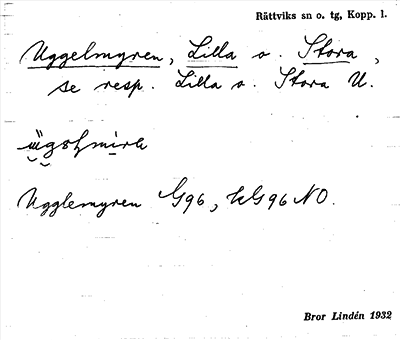 Rättviks sn o. tg, Kopp. l.
Uggelmyren, Lilla o. Stora,
se resp. Lilla o. Stora U.
Ugglemyren G96, kG96 NO.
Bror Lindén 1932